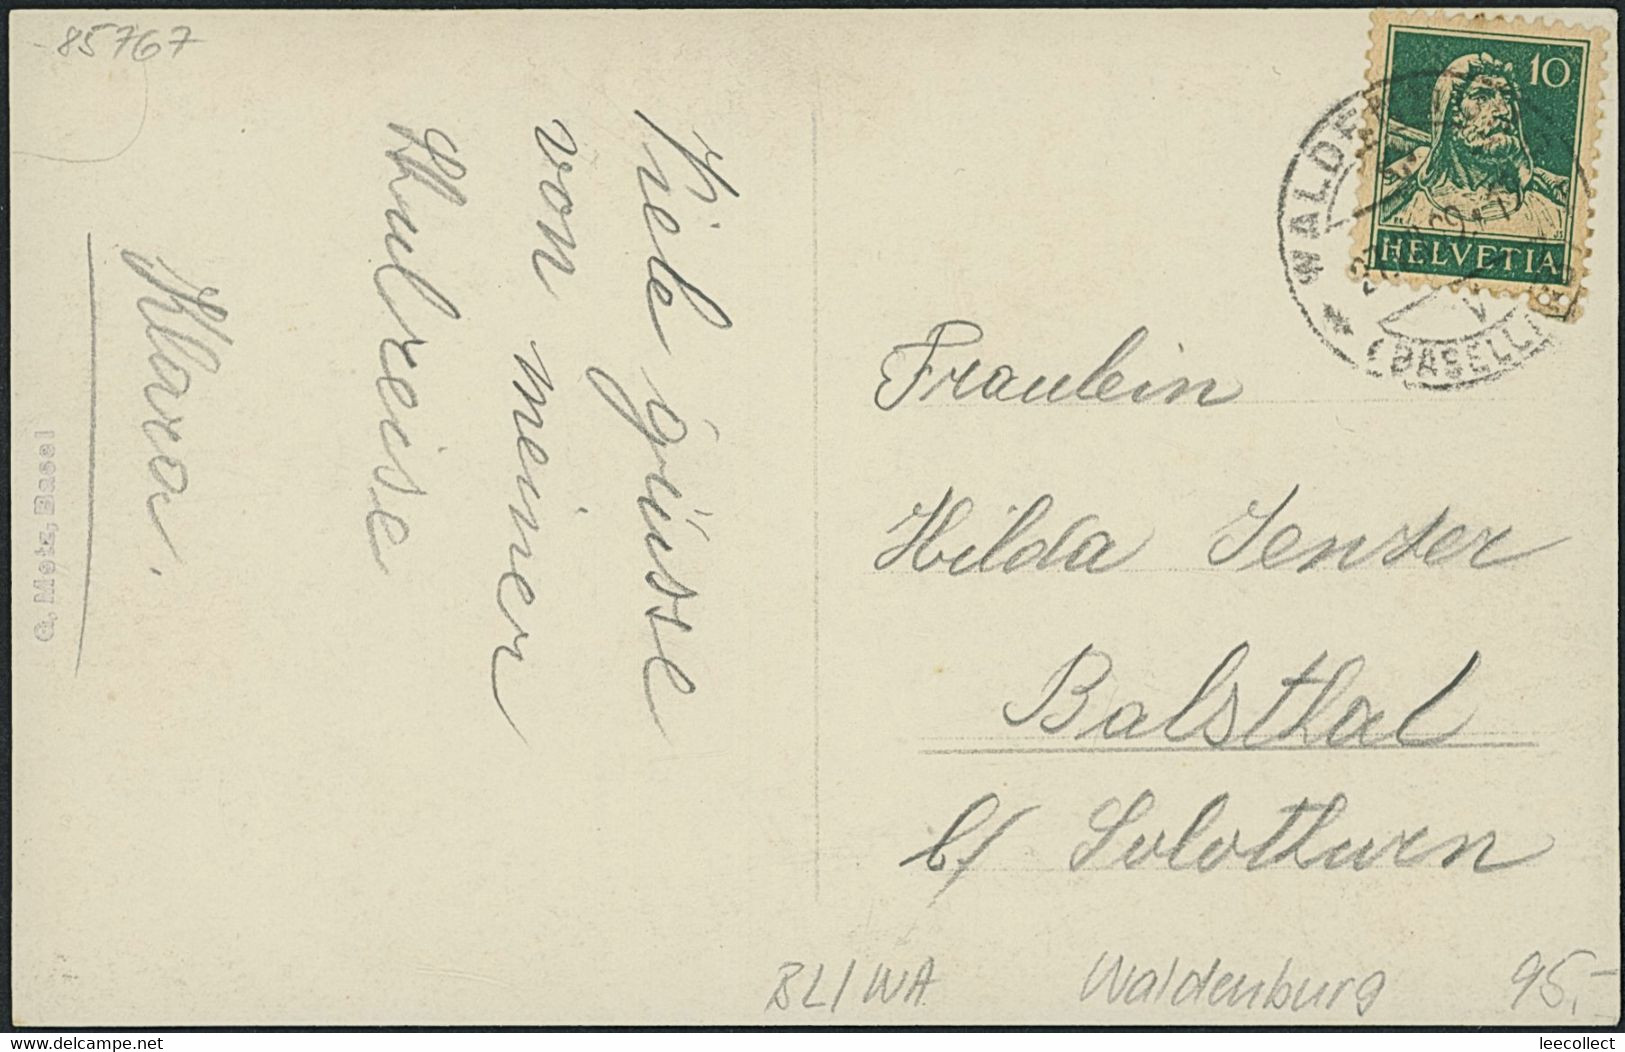 85767
Viele grüsse
von meiner
Schulreise
Klara.
G. Metz, Basel
10
HELVETIA
WALDENBURG
(BASELLAND)
Fraulein
Hilda Jenzer
Balsthal
b/ Solothurn
BL/WA Waldenburg 95.-
delcampe.net
leecollect